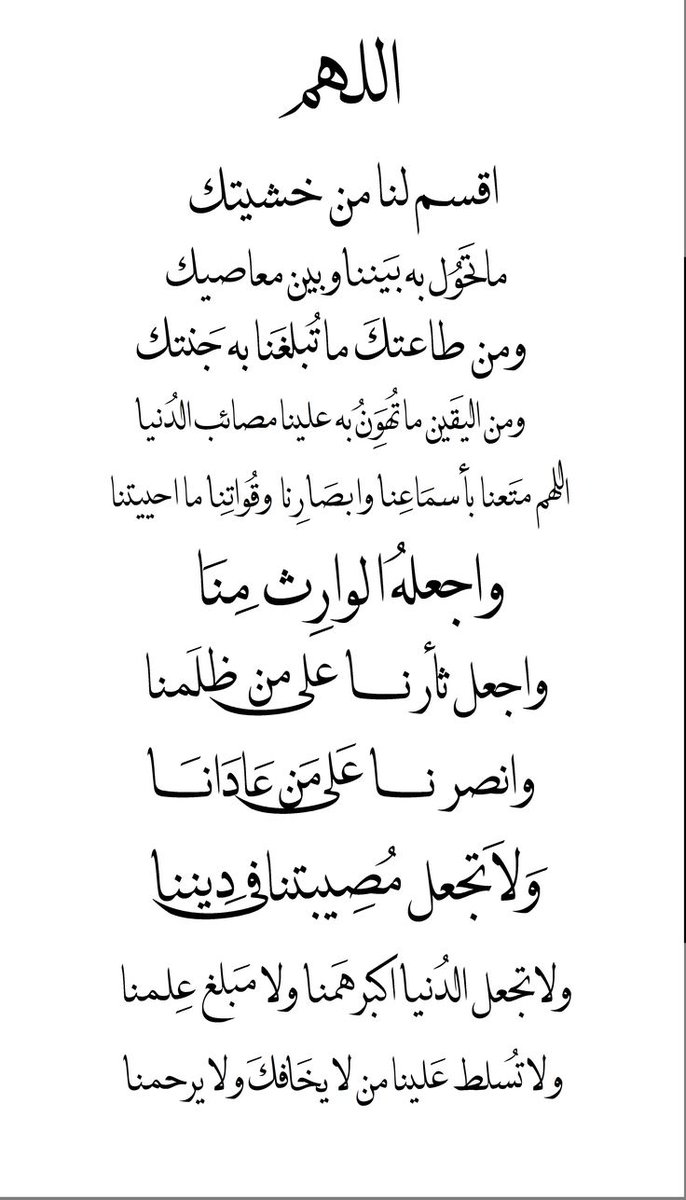 اللهم
اقسم لنا من خشيتك
ما تَحَوُل به بَيَننا وبين معاصيك
ومن طاعتكَ ما تُبلغَنا به جَنتك
ومن اليقَين ما تُهوَِنُ به علينا مصائب الدُنيا
اللهم متَعنا بأسمَاعِنا وابصَارِنا وقُواتِنا ما احييتنا
واجعلهُ الوارِث مِنَا
واجعل ثأرنـــا على من ظلَمنا
وانصرنـــا عَلى مَن عَادَانَــا
وَلاَ تجَعل مُصِيبتنا في دِيننا
ولا تجعل الدُنيا اكبر همَنا ولا مَبلغ عِلمنا
ولا تُسلط عَلينا من لا يخَافكَ ولا يرحمنا